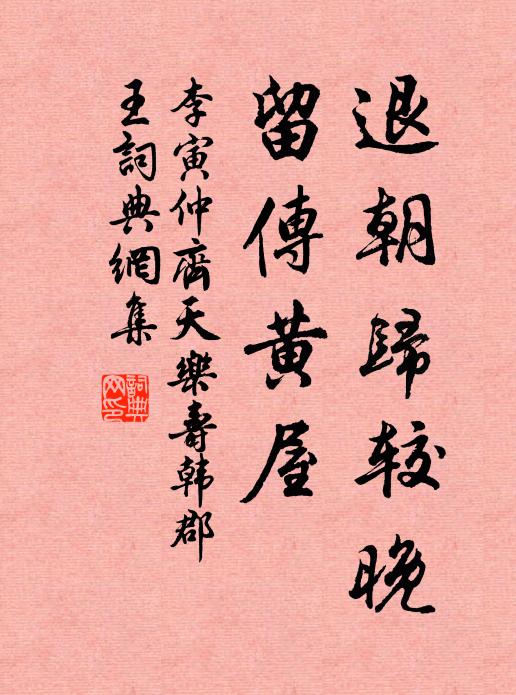 退朝歸较晚
留傳黄屋
李寅仲齊天樂壽韩郡
王詞典網集
詞典網印